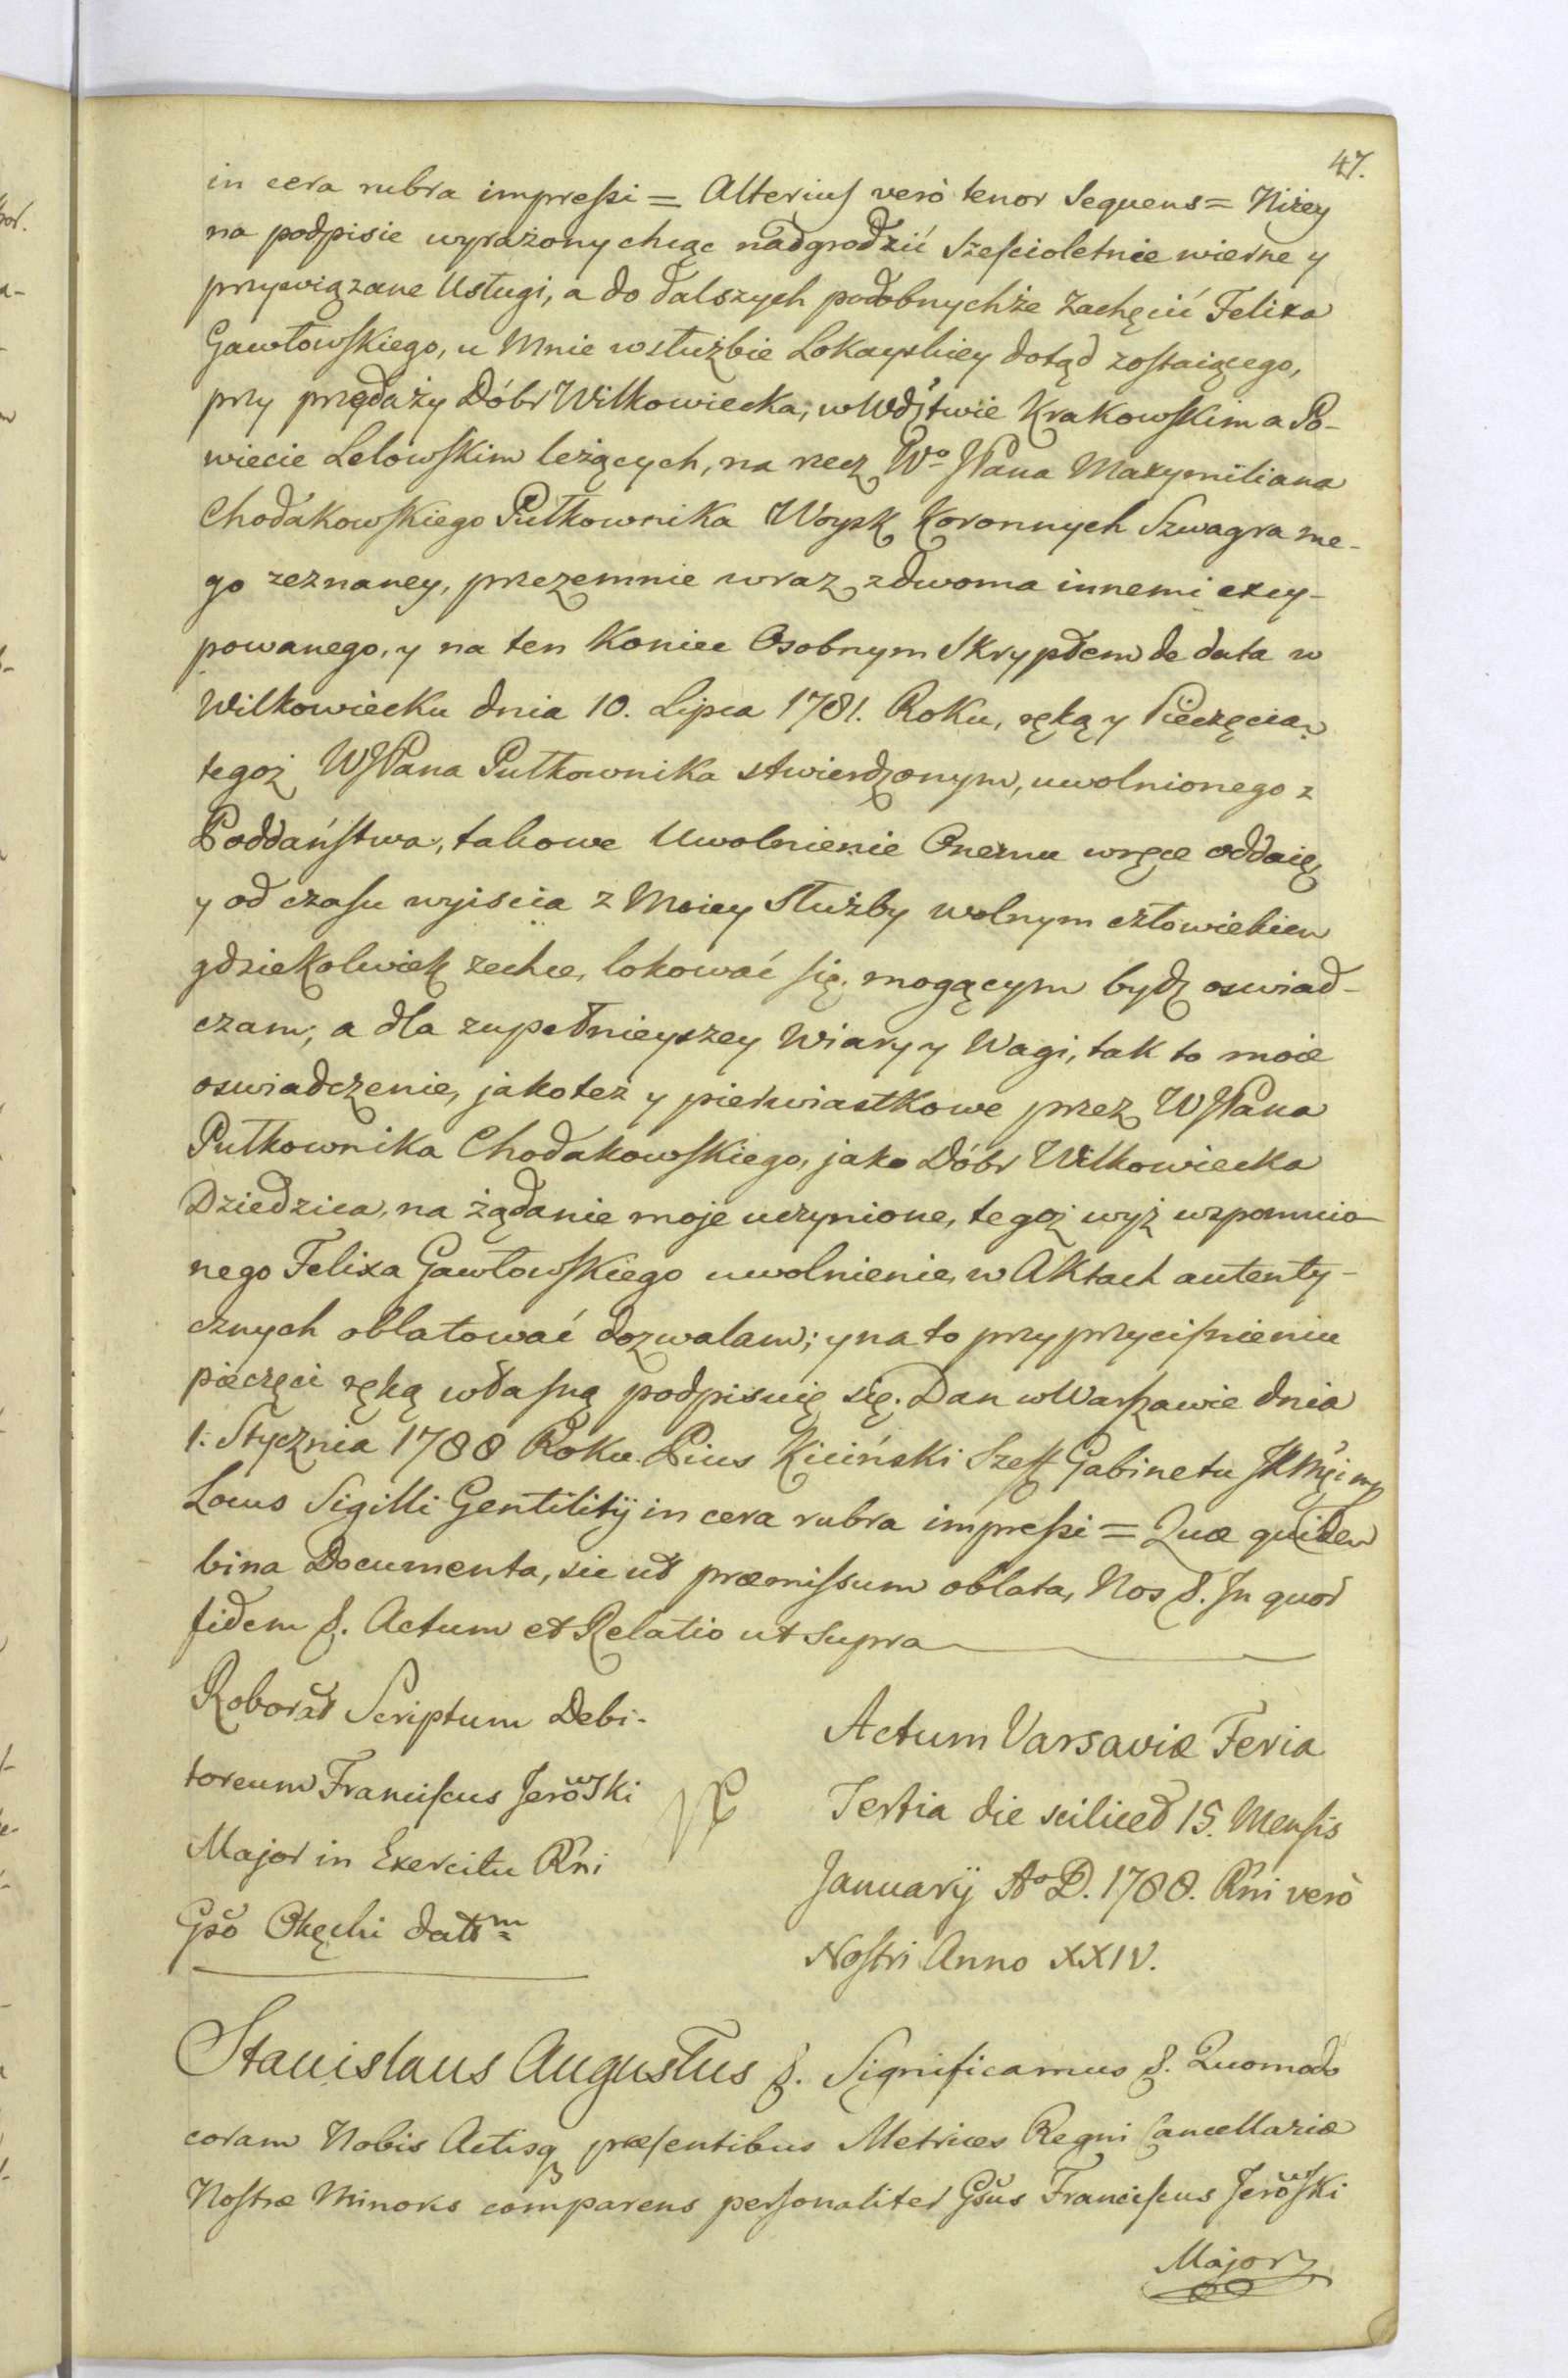 47.
in cera rubra impressi = Alterius verò tenor Sequens = Niżey
na podpisie wyrażony chcąc nadgrodzić Sześcioletnie wierne y
przywiązane Usługi, a do dalszych podobnychże Zachęcić Felixa
Gawłowskiego, u Mnie w służbie Lokayskiey dotąd zostaiącego,
przy przedaży Dóbr Wilkowiecka, w Wdztwie Krakowskim a Po-
wiecie Lelowskim leżących, na rzecz Wo JPana Maxymiliana
Chodakowskiego Pułkownika Woysk Koronnych Szwagra me-
go zeznaney, przezemnie wraz z dwoma innemi excy-
powanego, y na ten Koniec Osobnym Skryptem de data w
Wilkowiecku dnia 10. Lipca 1781. Roku, ręką y Pieczęcią
tegoż WJPana Pułkownika stwierdzonym, uwolnionego z
Poddaństwa, takowe Uwolnienie Onemu w ręce oddaię
y od czasu wyiscia z Moiey Służby wolnym człowiekiem
gdziekolwiek zechce, lokować się, mogącym bydz oswiad-
czam; a dla zupełnieyszey Wiary y Wagi, tak to moie
oswiadczenie, jakotez y pierwiastkowe przez WJPana
Pułkownika Chodakowskiego, jako Dóbr Wilkowiecka
Dziedzica, na żądanie moje uczynione, tegoż wyż wzpomnio-
nego Felixa Gawłowskiego uwolnienie, w Aktach autenty-
cznych oblatować dozwalam; y na to przy przycisnieniu
pieczęci ręką własną podpisuię się. Dan w Warszawie dnia
1. Stycznia 1788 Roku. Pius Kiciński Szeff Gabinetu JKMści mp
Locus Sigilli Gentilitij in cera rubra impressi = Quæ quidem
bina Documenta, sic ut præmissum oblata, Nos &. In quor
fidem &. Actum et Relatio ut supra
Roborat Scriptum Debi-
toreum Franciscus Jerowski
Major in Exercitu Rni
Gso Okęcki datm
Actum Varsaviæ Feria
Tertia die scilicet 15. Mensis
Januarij Ao D. 1788. Rni verò
Nostri Anno XXIV.
Stanislaus Augustus &. Significamus &. Quomodo
coram Nobis Actisq præsentibus Metrices Regni Cancellariæ
Nostræ Minoris comparens personaliter Gsus Franciscus Jerowski
Major